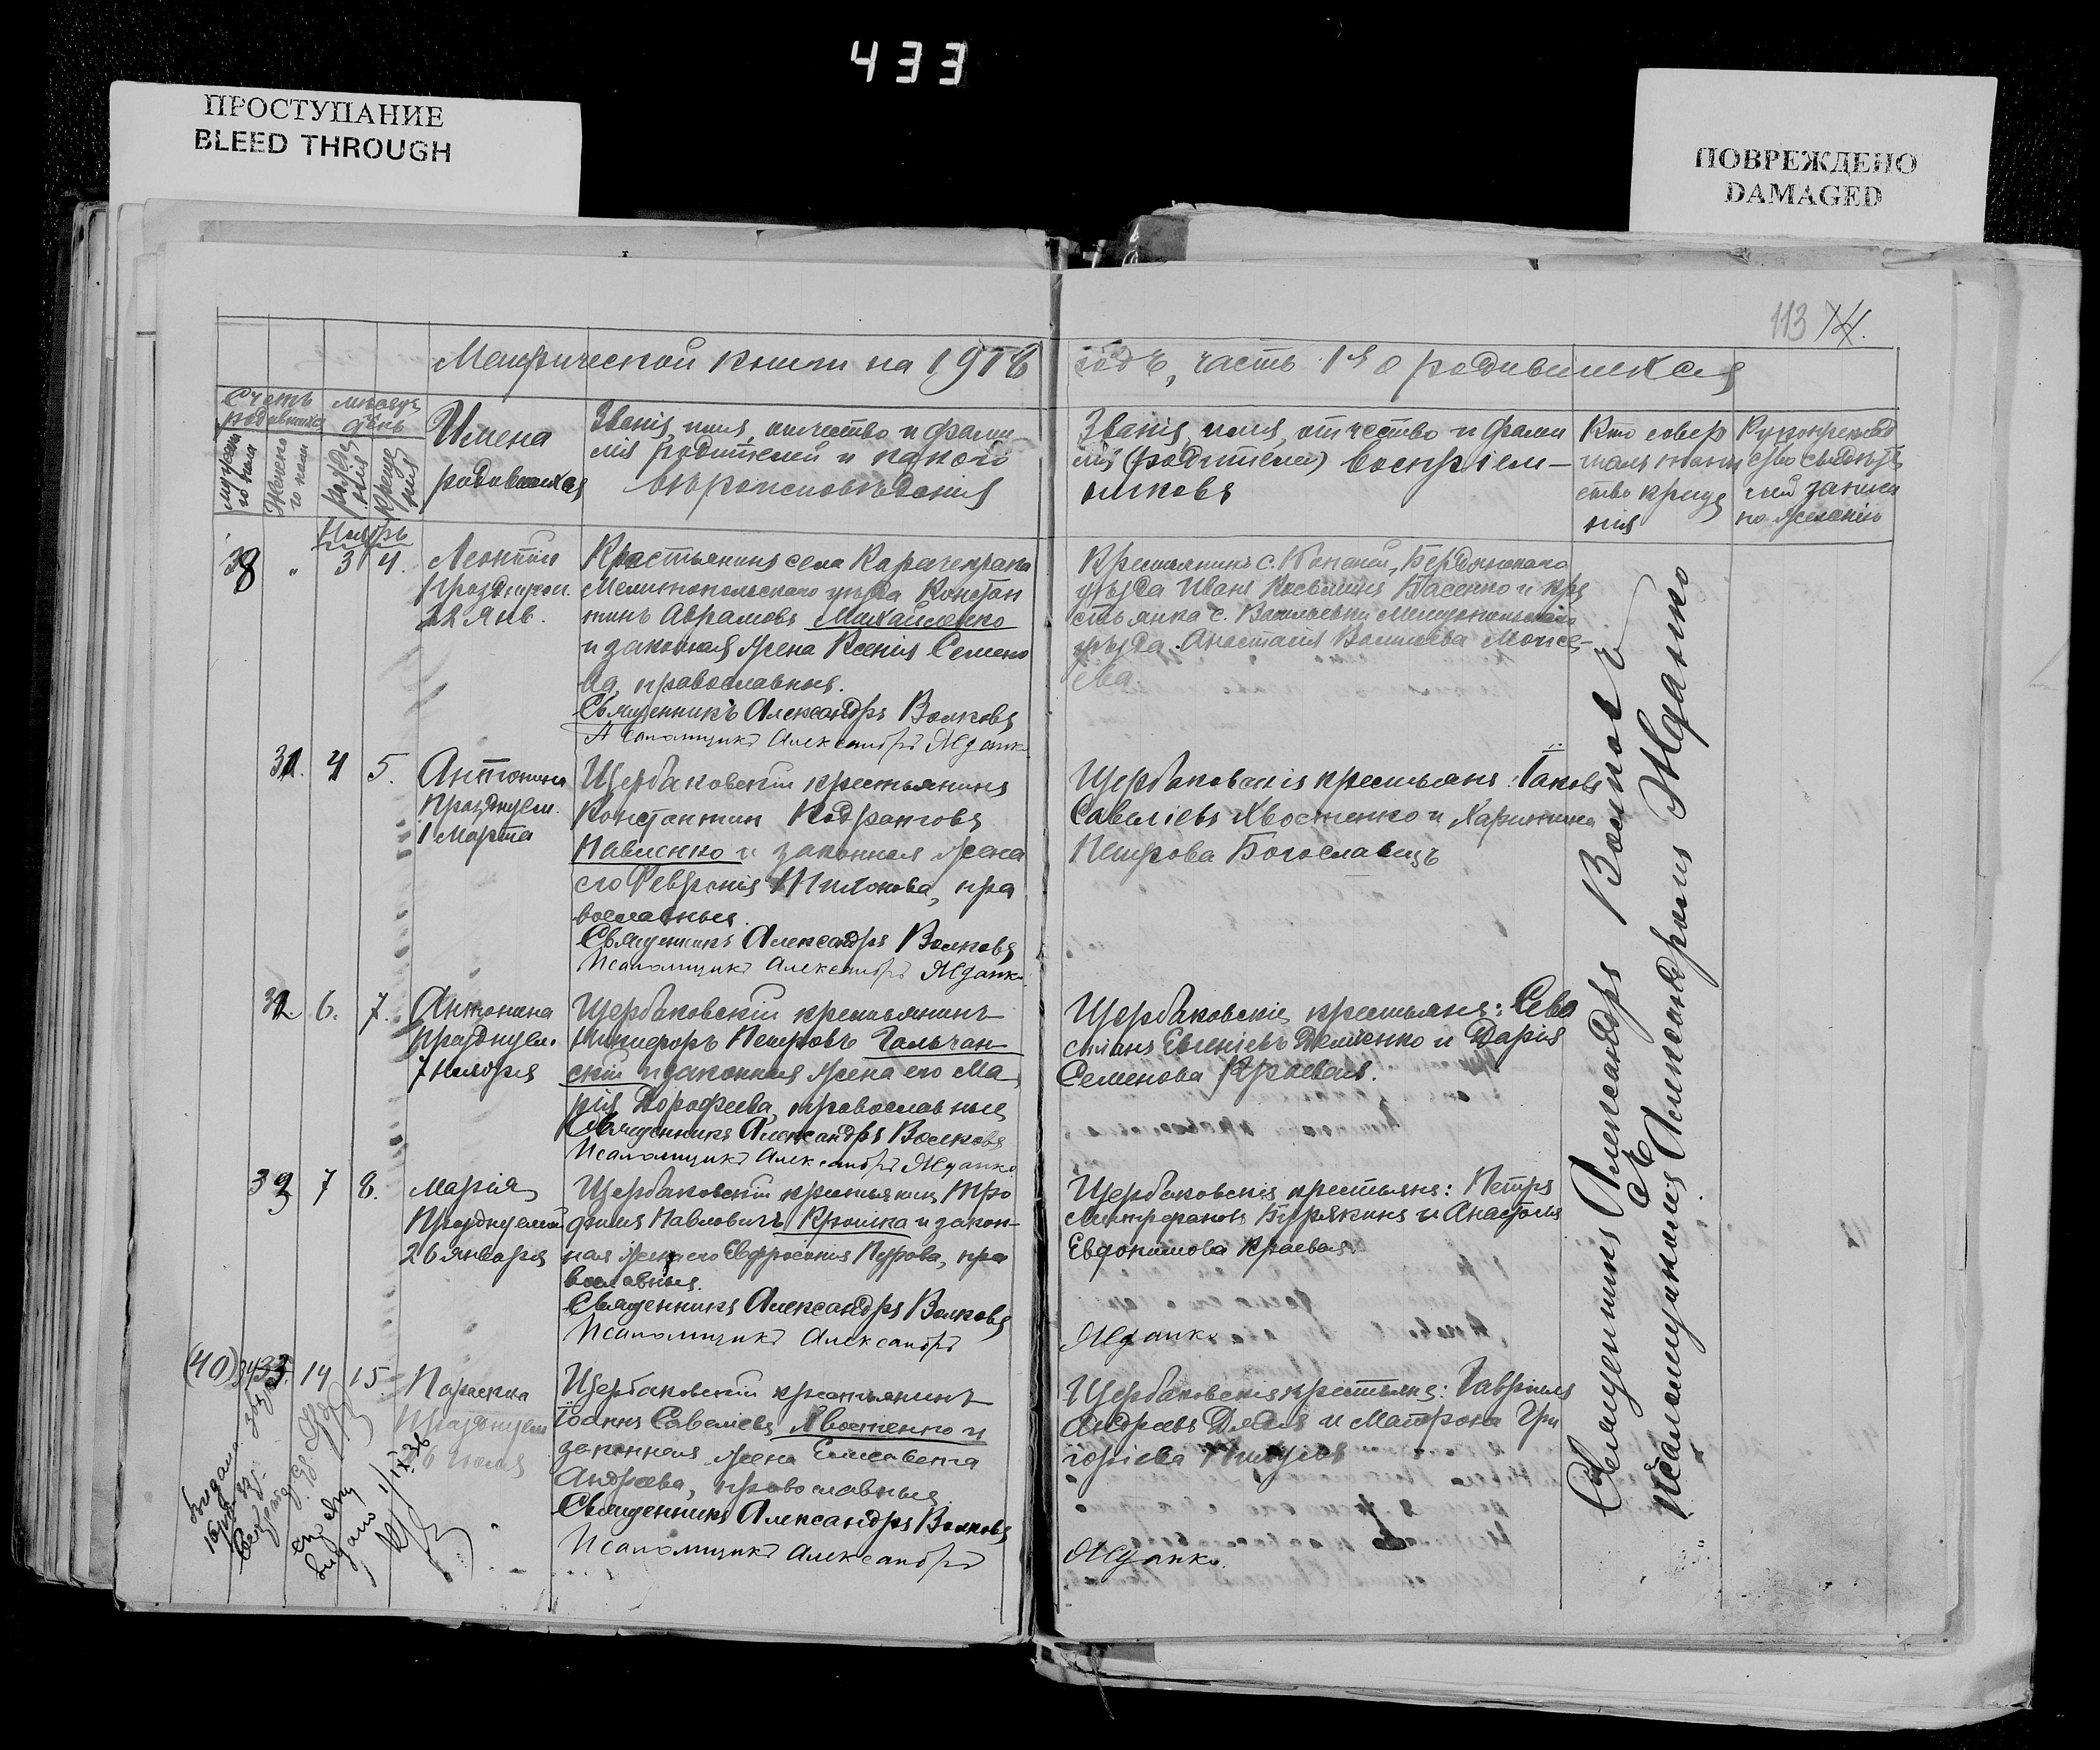 433
ПРОСТУПАНИЕ
BLEED THROUGH
ПОВРЕЖДЕНО
DAMAGED
113
Метрической книги на 1918
годъ, часть 1я о родившихся
Счетъ родившихся
мужеска го пола
Женска го пола
мѣсяцъ день
рожде нія
креще нія
Имена
родившихся
Званіе, имя, отчество и фами
лія родителей и какого
вѣроисповѣданія
Званіе, имя, отчество и фами
лія (родителей) воспріем-
никовъ
Кто совер
шалъ таин
ство креще
нія
Рукоприклад
ство свидѣте
лей записи
по желанію
Ноябрь
38 " 3 4.
Леонтій
празднуем.
22 Янв.
Крестьянинъ села Карачекрака
Мелитопольского уѣзда Констан
тинъ Аврамовъ Михайленко
и законная жена Ксенія Семено
ва, православные.
Священникъ Александръ Волковъ
Псаломщикъ Александръ Жданко
Крестьянинъ с. Конской, Бердянскаго
уѣзда Иванъ Косьминъ Власенко и кре
стьянка с. Васильевки Мелитопольскаго
уѣзда Анастасія Васильева Моисе-
ева.
31. 4 5.
Антонина
празднуем.
1 Марта
Щербаковскій крестьянинъ
Константин Кодратовъ
Павленко и законная жена
его Февронія Титонова, пра
вославные.
Священникъ Александръ Волковъ
Псаломщикъ Александръ Жданко
Щербаковскіе крестьяне: Іаковъ
Савеліевъ Хвостенко и Харитина
Петрова Богославецъ
32. 6. 7.
Антонина
празднуем.
7 Ноября
Щербаковскій крестьянинъ
Никифоръ Петровъ Гальчан-
скій и законная жена его Ма
рія Дорофеева, православные
Священникъ Александръ Волковъ
Псаломщикъ Александръ Жданко
Щербаковскіе крестьяне: Сева
стіанъ Евгеніевъ Демченко и Дарія
Семенова Краевая.
33 7 8.
Марія
Празднуемой
26 января
Щербаковскій крестьянинъ Тро
фимъ Павловичъ Крошка и закон-
ная жена его Евфросинія Петрова, пра
вославные.
Священникъ Александръ Волковъ
Псаломщикъ Александръ
Щербаковскіе крестьяне: Петръ
Митрофановъ Бурякинъ и Анастасія
Евдокимова Краевая.
Жданко
(40) 34 33. 14 15.
Параскева
Празднуем
26 июля
Щербаковскій крестьянинъ
Іоаннъ Савеліевъ Хвостенко и
законная жена Елисавета
Андреева, православные
Священникъ Александръ Волковъ
Псаломщикъ Александръ
Щербаковскіе крестьяне: Гавріилъ
Андреевъ Дядя и Матрона Гри
горіева
Жданко.
Священникъ Александръ Волковъ
Псаломщикъ Александръ Жданко